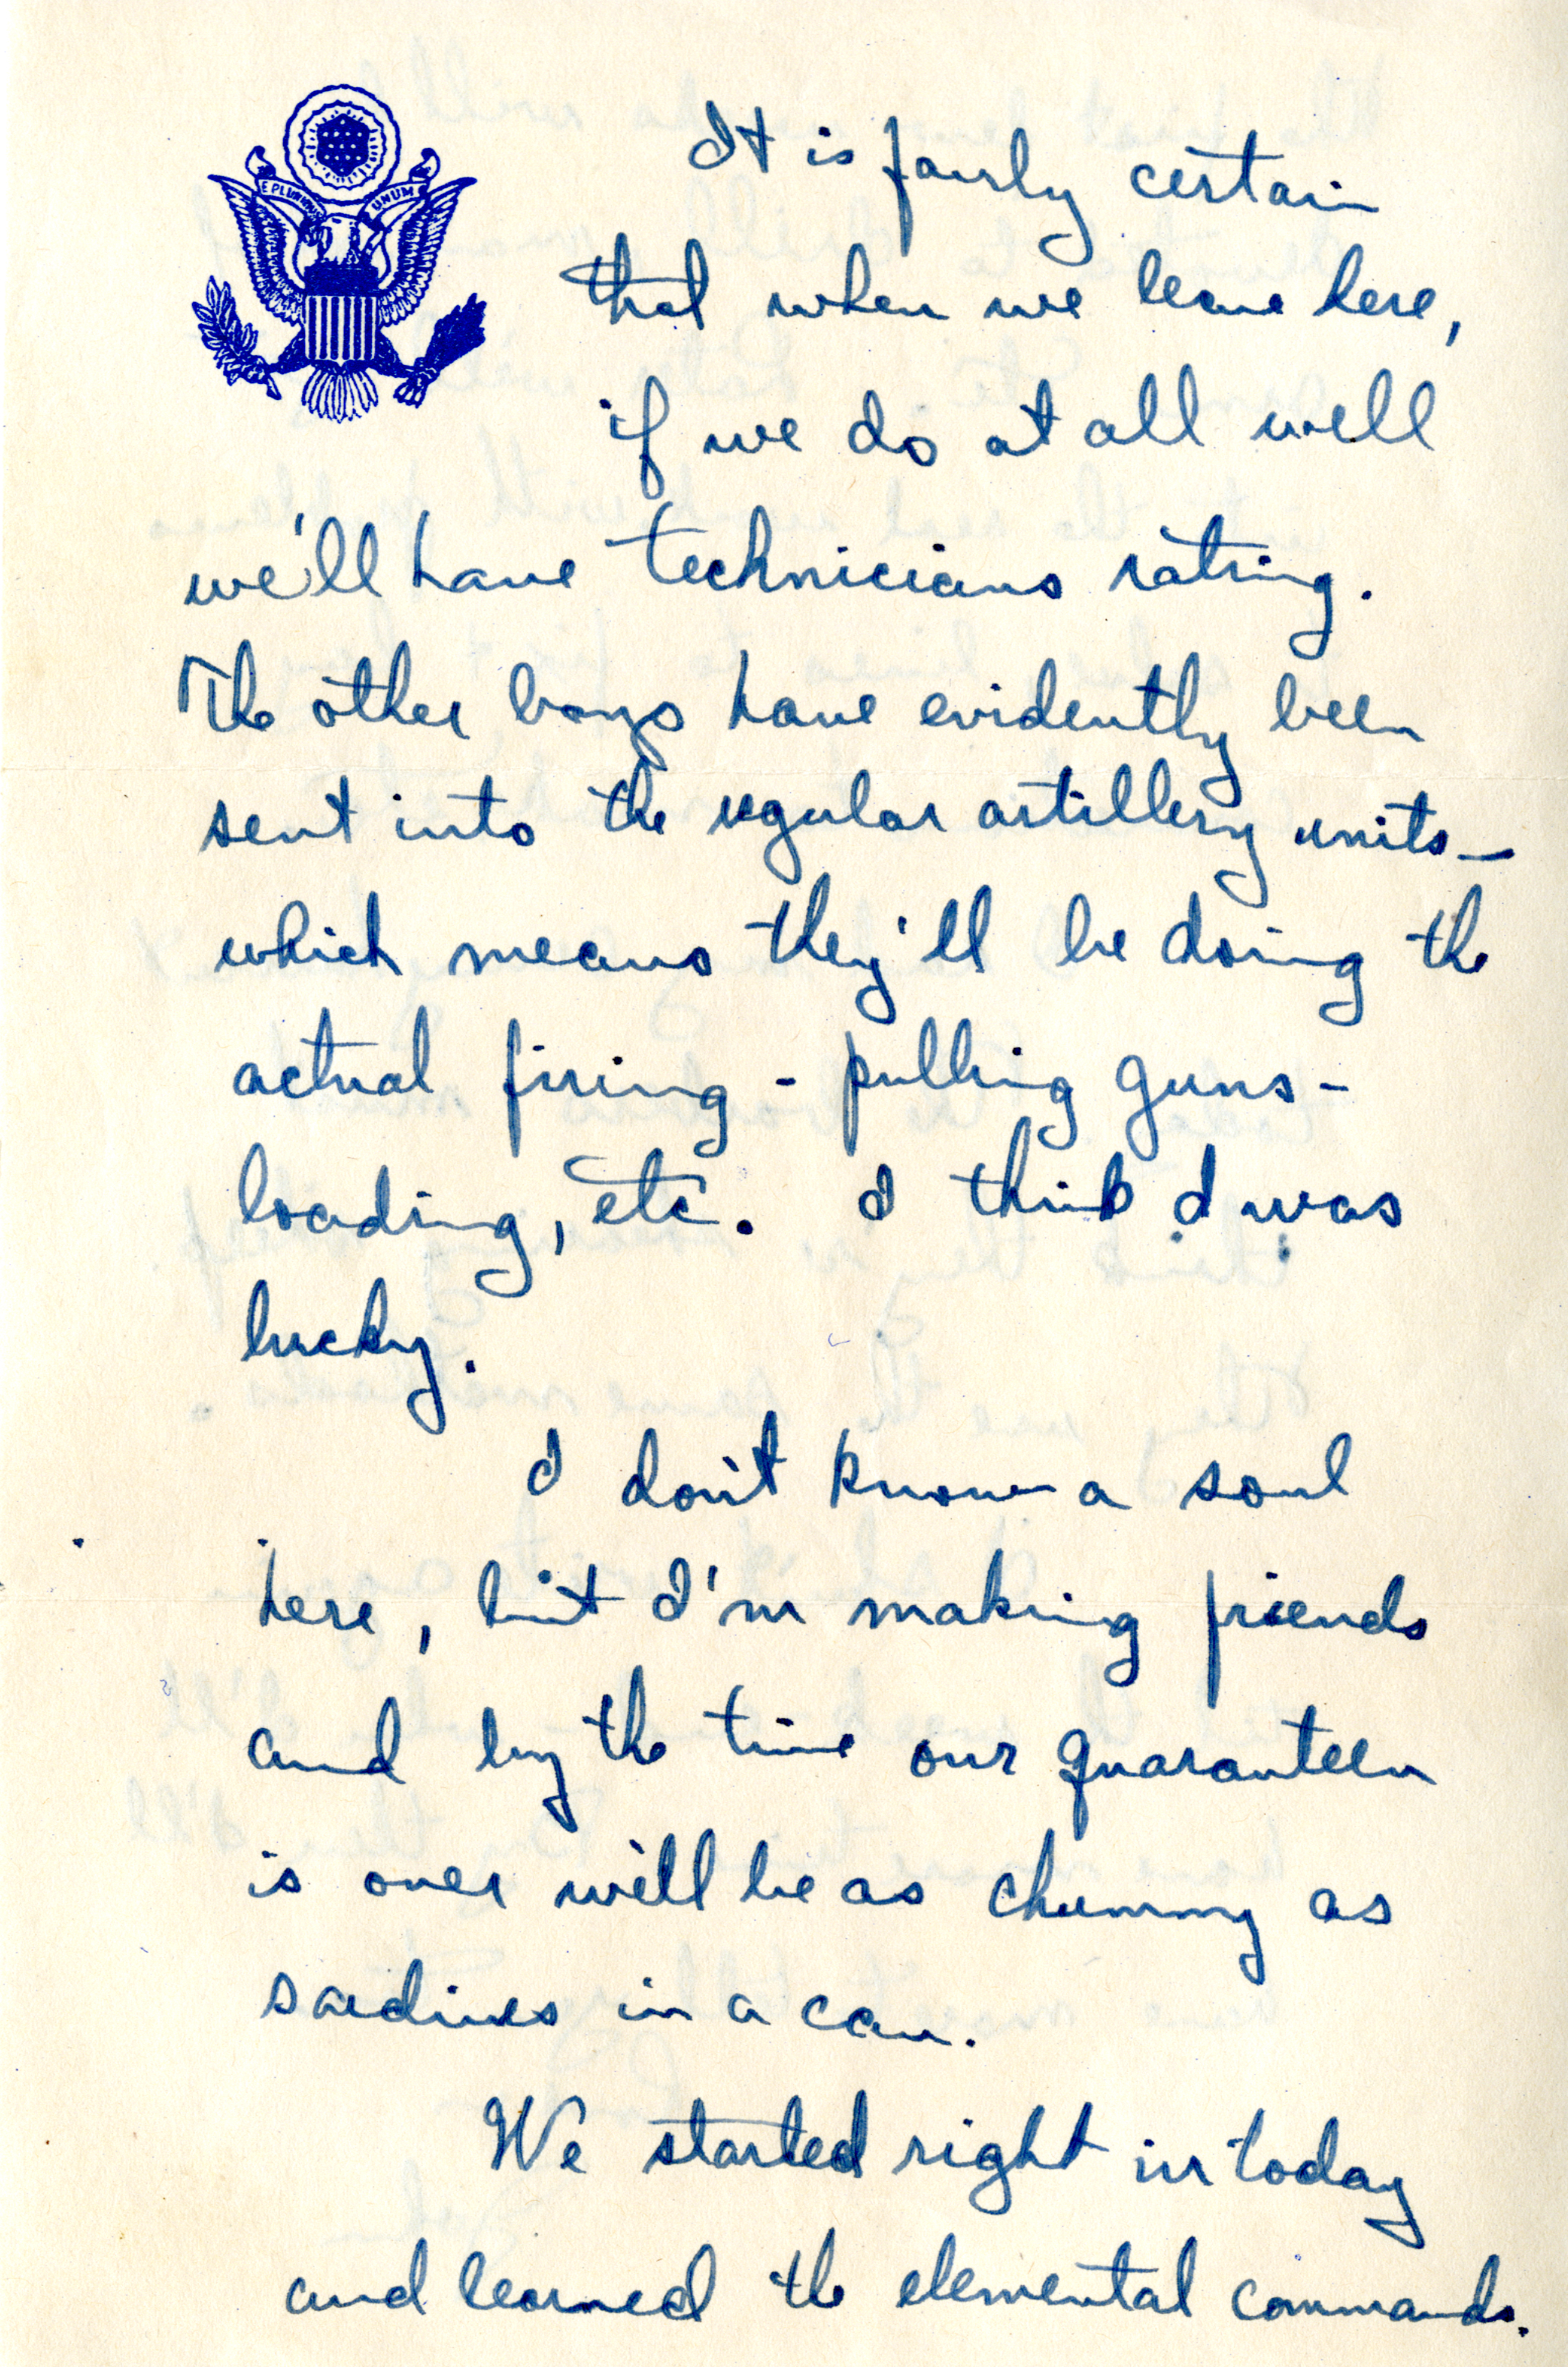 E PLURIBUS UNUM
It is fairly certain
that when we leave here,
if we do at all well
we'll have technicians rating.
The other boys have evidently been
sent into the regular artillery units—
which means they'll be doing the
actual firing - pulling guns -
loading, etc. I think I was
lucky.
I don't know a soul
here, but I'm making friends
and by the time our quaranteen
is over we'll be as chummy as
sardines in a can.
We started right in today
and learned the elemental commands.